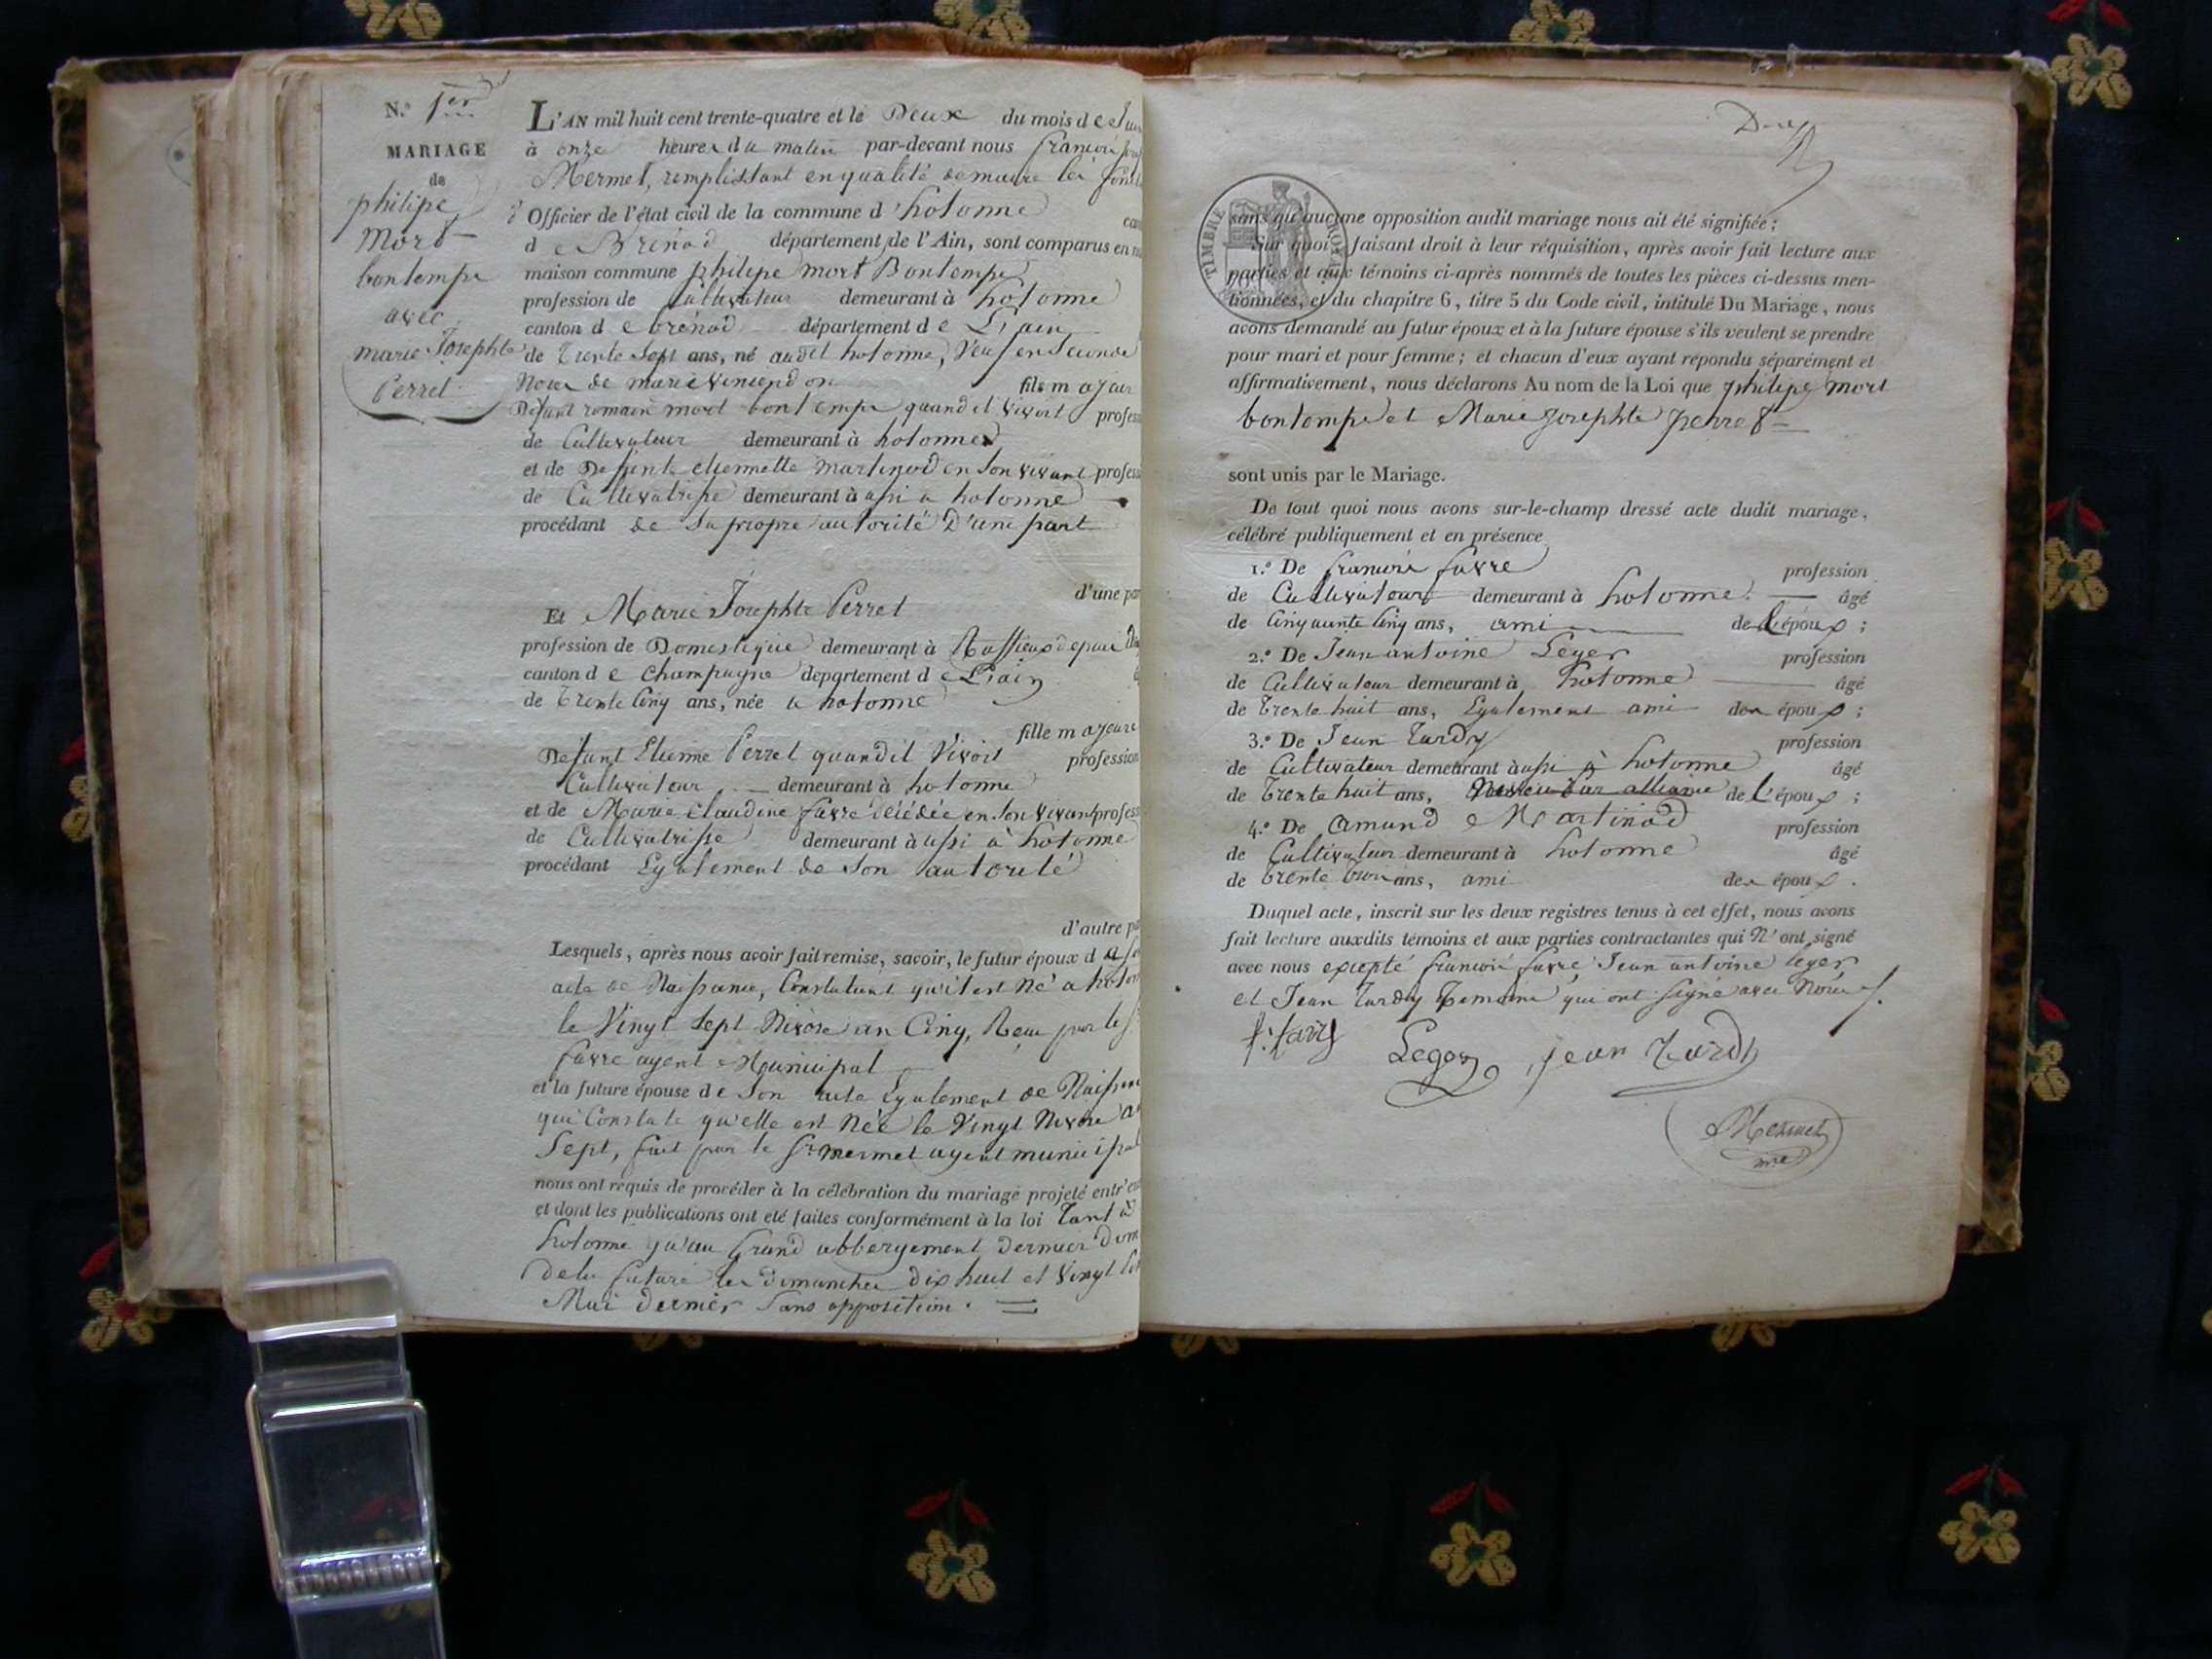 N.º 1er
MARIAGE
de
philipe
Mort
bontempe
avec
marie Josephte
Perret
L'AN mil huit cent trente-quatre et le Deux du mois de
à onze heures du matin par-devant nous francois
Mermet, remplissant en qualité de maire les
Officier de l'état civil de la commune d'hotonne
de Brénod département de l'Ain, sont comparus en
maison commune philipe mort Bontempe
profession de Cultivateur demeurant à hotonne
canton de brénod département de L'ain
de trente sept ans, né audit hotonne, Veuf en Seconde
Noces de marie vincendon fils majeur
Defunt romain mort bontempe quand il vivoit
de Cultivateur demeurant à hotonne
et de Defunte etiennette martinod en Son vivant
de Cultivatrisse demeurant à ussi a hotonne
procédant de Sa propre autorité D'une part
d'une
Et Marie Josephte Perret
profession de Domestique demeurant à Ruffieux depuis
canton de Champagne département de L'ain
de trente Cinq ans, née a hotonne
fille majeure
Defunt Etienne Perret quand il Vivoit profession
Cultivateur demeurant à hotonne
et de Marie Claudine favre décédée en Son vivant
de Cultivatrisse demeurant à ussi à hotonne
procédant Egalement de Son autorité
d'autre
Lesquels, après nous avoir fait remise, savoir, le futur époux d
acte de Naissance, Constatant qu'il est Né a
le Vingt Sept Nivose an Cinq, Recu par le
favre agent Municipal
et la future épouse de Son acte Egalement de
qui Constate qu'elle est Née le Vingt Nivose
Sept, fait par le Sr mermet agent
nous ont requis de procéder à la célébration du mariage projeté
et dont les publications ont été faites conformément à la loi Tant à
hotonne qu'au Grand abbergement Dernier
de la future les dimanches dix huit et Vingt
Mai dernier Sans opposition. =
TIMBRE ROYAL
sans qu'aucune opposition audit mariage nous ait été signifiée;
Sur quoi, faisant droit à leur réquisition, après avoir fait lecture aux
parties et aux témoins ci-après nommés de toutes les pièces ci-dessus men-
tionnées, et du chapitre 6, titre 5 du Code civil, intitulé Du Mariage, nous
avons demandé au futur époux et à la future épouse s'ils veulent se prendre
pour mari et pour femme; et chacun d'eux ayant repondu séparément et
affirmativement, nous déclarons Au nom de la Loi que philipe mort
bontempe et Marie Josephte perret
sont unis par le Mariage.
De tout quoi nous avons sur-le-champ dressé acte dudit mariage,
célébré publiquement et en présence
1.º De francois favre profession
de Cultivateur demeurant à hotonne âgé
de Cinquante Cinq ans, ami de L'époux;
2.º De Jean antoine Leger profession
de Cultivateur demeurant à hotonne âgé
de trente huit ans, Egalement ami des époux;
3.º De Jean Tardy profession
de Cultivateur demeurant à ussi à hotonne âgé
de trente huit ans, Neveu par alliance de L'époux;
4.º De amand Martinod profession
de Cultivateur demeurant à hotonne âgé
de trente trois ans, ami des époux.
Duquel acte, inscrit sur les deux registres tenus à cet effet, nous avons
fait lecture auxdits témoins et aux parties contractantes qui N'ont signé
avec nous excepté francois favre, Jean antoine leger
et Jean Tardy Temoins qui ont signé avec Nous
Leger jean Tardy
Mermet